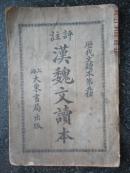 歷代文讀本第種
評註
漢魏文讀本
上海
大東書局出版